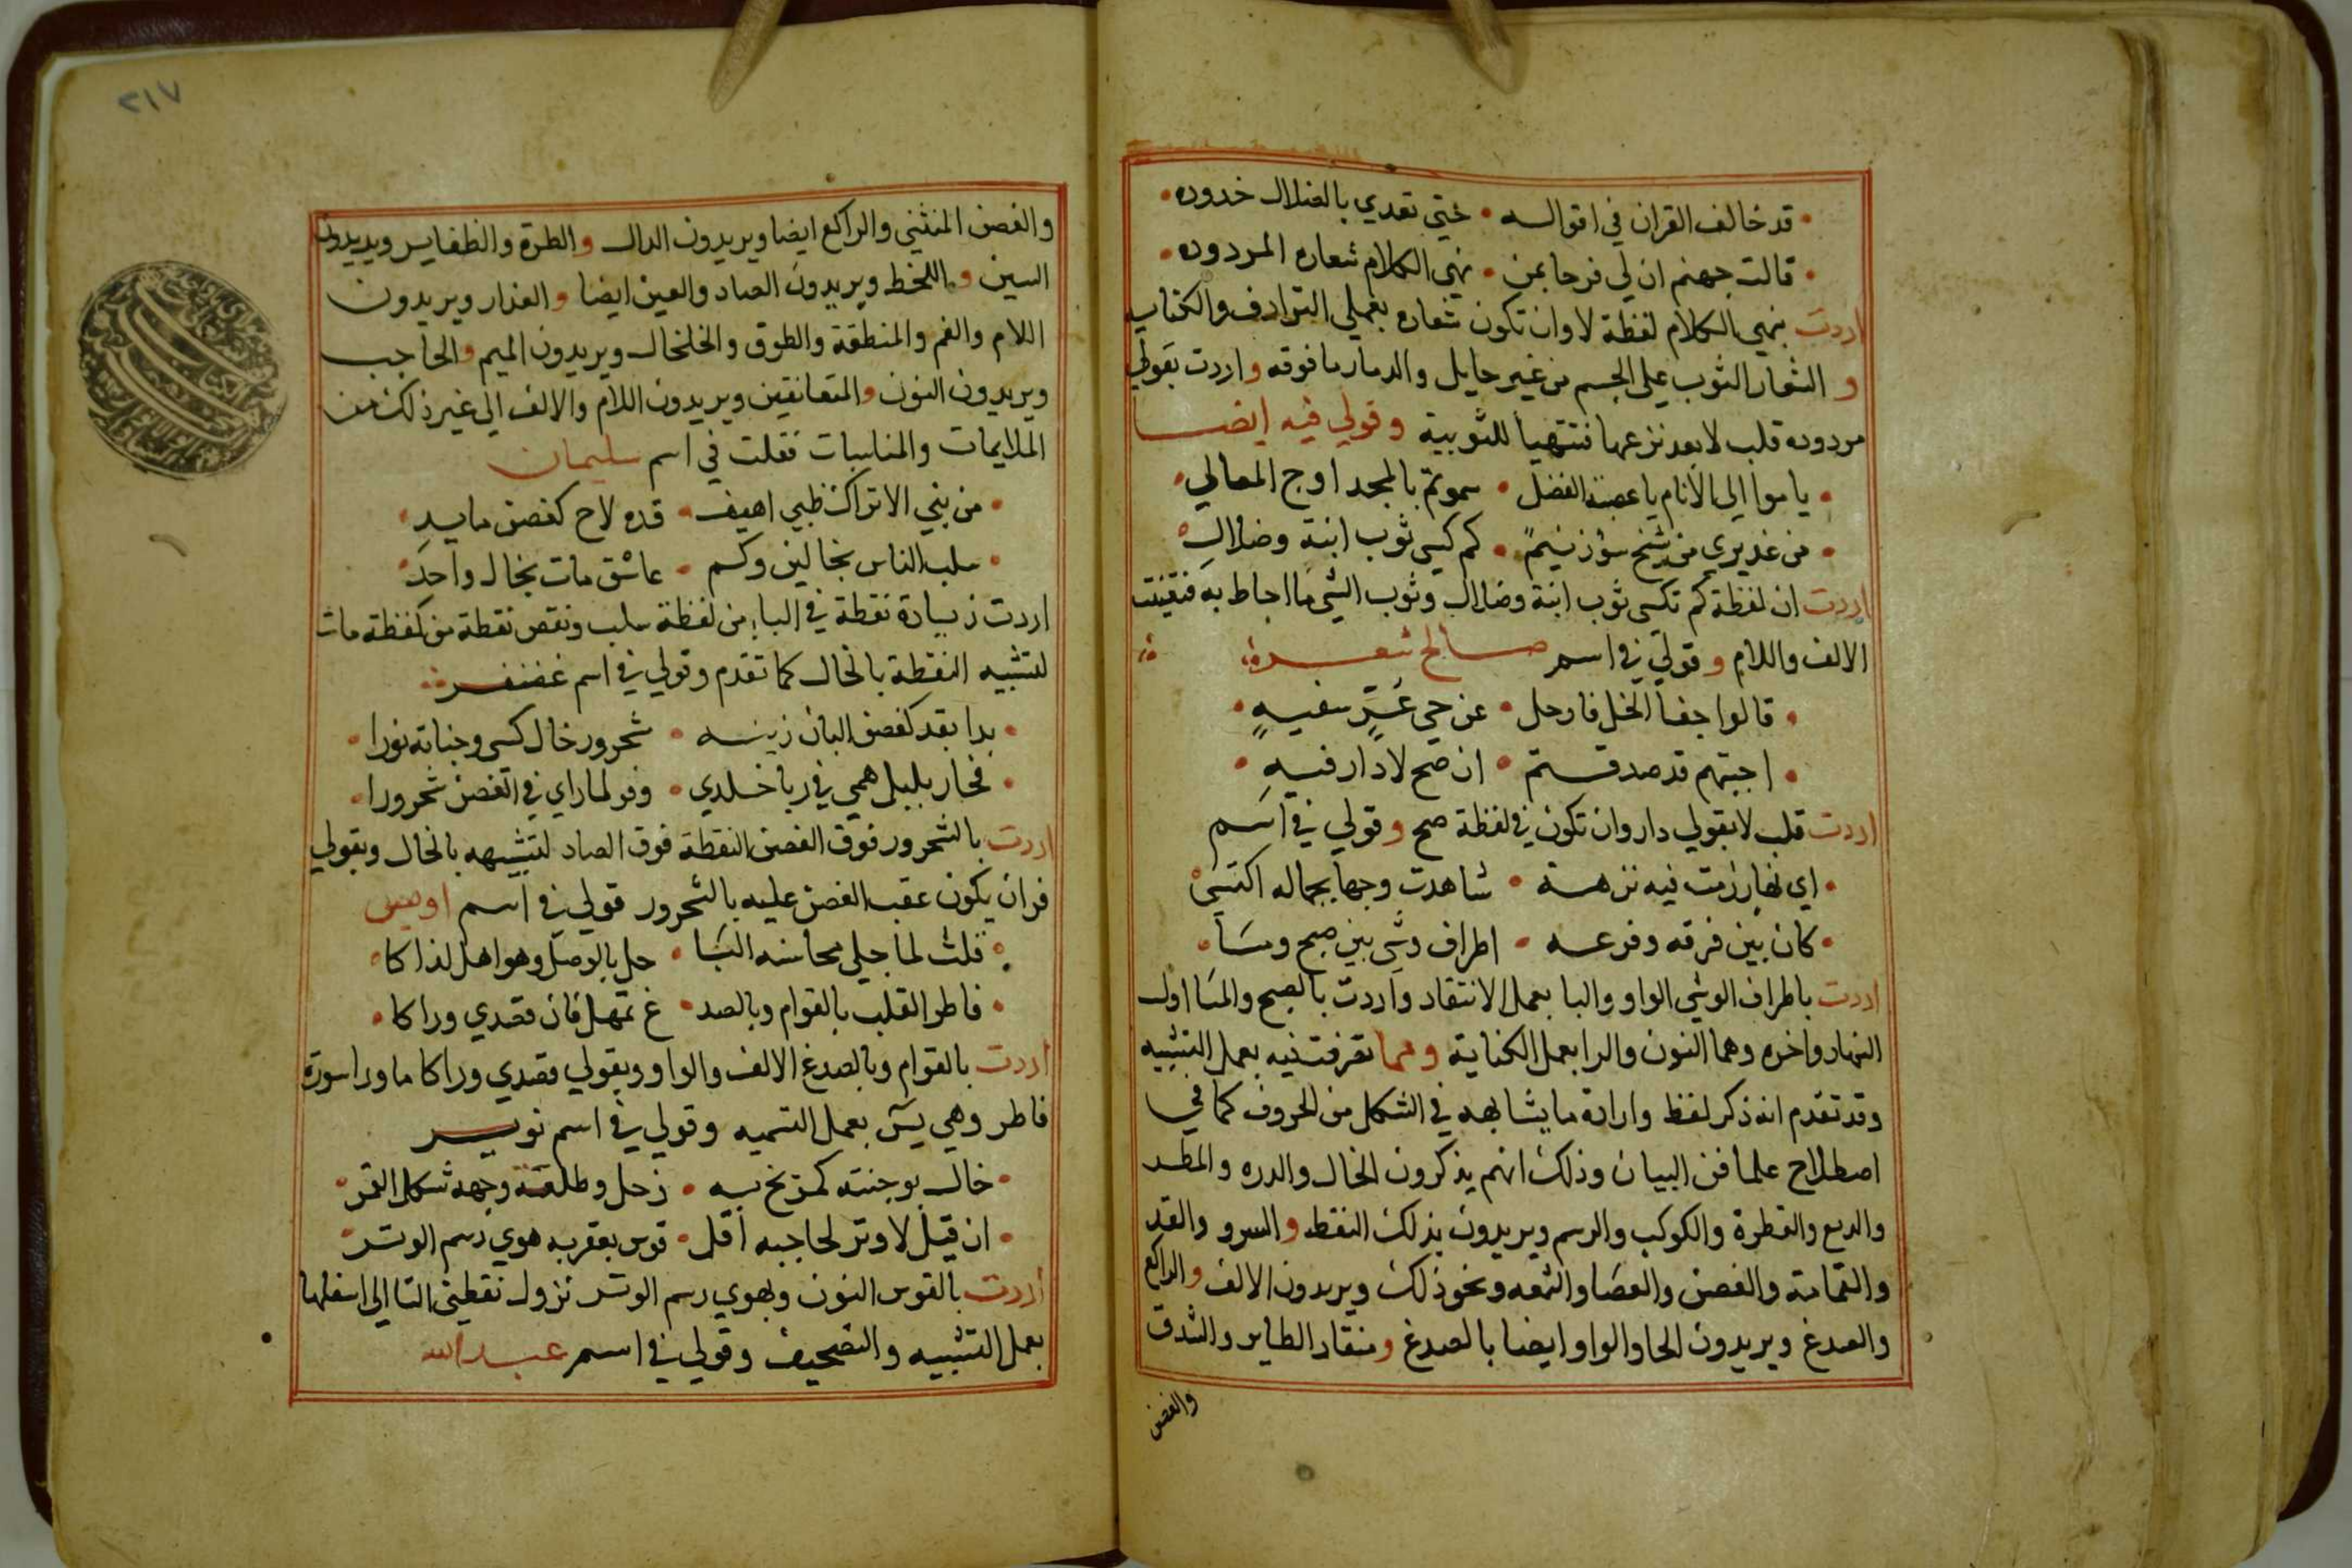 قد خالف القران في اقواله • غيّ تعدي بالضلال حدوده
قالت جهنم ان لي فرحا بمن • نهي الكلام شعاره المردوده
اردت بنهي الكلام لفظة لا وان تكون شعاره بعملي الترادف والكناية
و الشعار الثوب على الجسم من غير حايل والدثار ما فوقه واردت بقولي
مردوده قلب لا بعد نزعها فتتهيأ للثوبية وقولي فيه ايضا
ياموا الى الانام يا عصبة الفضل • سموتم بالمجد اوج المعالي
من عذيري من شيخ سوء زنيم • كم كسي ثوب ابنة وضلال
اردت ان لفظة كم تكسى ثوب ابنة وضلال وثوب الشي ما احاط به
الالف واللام وقولي في اسم صالح شعره
قالوا جفا الخل فارحل • عن حي غرّ سفيه
اجبتهم قد صدقتم • ان صح لا دار فيه
اردت قلب لا بقولي دار وان تكون في لفظة صح وقولي في اسم
اي نهار زمت فيه نزهة • شاهدت وجها بجماله اكتسى
كان بين فرقه وفرعه • اطراف وشي بين صبح ومسا
اردت باطراف الوشي الواو واليا بعمل الانتقاد واردت بالصبح والمسا اول
النهار واخره وهما النون والرا بعمل الكناية ومما تفرقت فيه بعمل التشبيه
وقد تقدم انه ذكر لفظ وارادة ما يشابهه في الشكل من الحروف كما في
اصطلاح علما فن البيان وذلك انهم يذكرون الخال والدره والمطر
والدمع والقطرة والكوكب والرسم ويريدون بذلك النقط والسرو والقد
والقامة والغصن والعصا والشمعه ونحو ذلك ويريدون الالف والراكع
والصدغ ويريدون الحا والواو ايضا بالصدغ ومنقار الطاير والشدق
والغصن
٢١٧
والغصن المنثني والراكع ايضا ويريدون الدال والطرة والطفاير ويريدون
السين واللحظ ويريدون الصاد والعين ايضا والعذار ويريدون
اللام والفم والمنطقة والطوق والخلخال ويريدون الميم والحاجب
ويريدون النون والمتعانقين ويريدون اللام والالف الى غير ذلك من
الملايمات والمناسبات فقلت في اسم سليمان
من بني الاتراك ظبي اهيف • قده لاح كغصن مايد
سلب الناس بخالين وكم • عاشق مات بخال واحد
اردت زيادة نقطة في البا من لفظة سلب ونقص نقطة من لفظة مات
لتشبيه النقطة بالخال كما تقدم وقولي في اسم غضنفر
بدا بقد كغصن البان زينه • شحرور خال كسى وجناته نورا
فحار بلبل همي في ربا خلدي • وفر لما راي في الغصن شحرورا
اردت بالشحرور فوق الغصن النقطة فوق الصاد لتشبيهه بالخال وبقولي
فر ان يكون عقب الغصن عليه بالشحرور قولي في اسم اويس
قلت لما جلى محاسنه البَنَا • حل بالوصل وهو اهل لذاكا
فاطر القلب بالقوام وبالصد • غ تمهل فان قصدي وراكا
اردت بالقوام وبالصدغ الالف والواو وبقولي قصدي وراكا ما ورا سورة
فاطر وهي يس بعمل التسميه وقولي في اسم نوير
خال بوجنته كمريخ به • زحل وطلعة وجهه شكل القمر
ان قيل لا وتر لحاجبه اقل • قوس بعقربه هوي رسم الوتر
اردت بالقوس النون وبهوي رسم الوتر نزول نقطتي التا الى اسفلها
بعمل التشبيه والتصحيف وقولي في اسم عبد الله